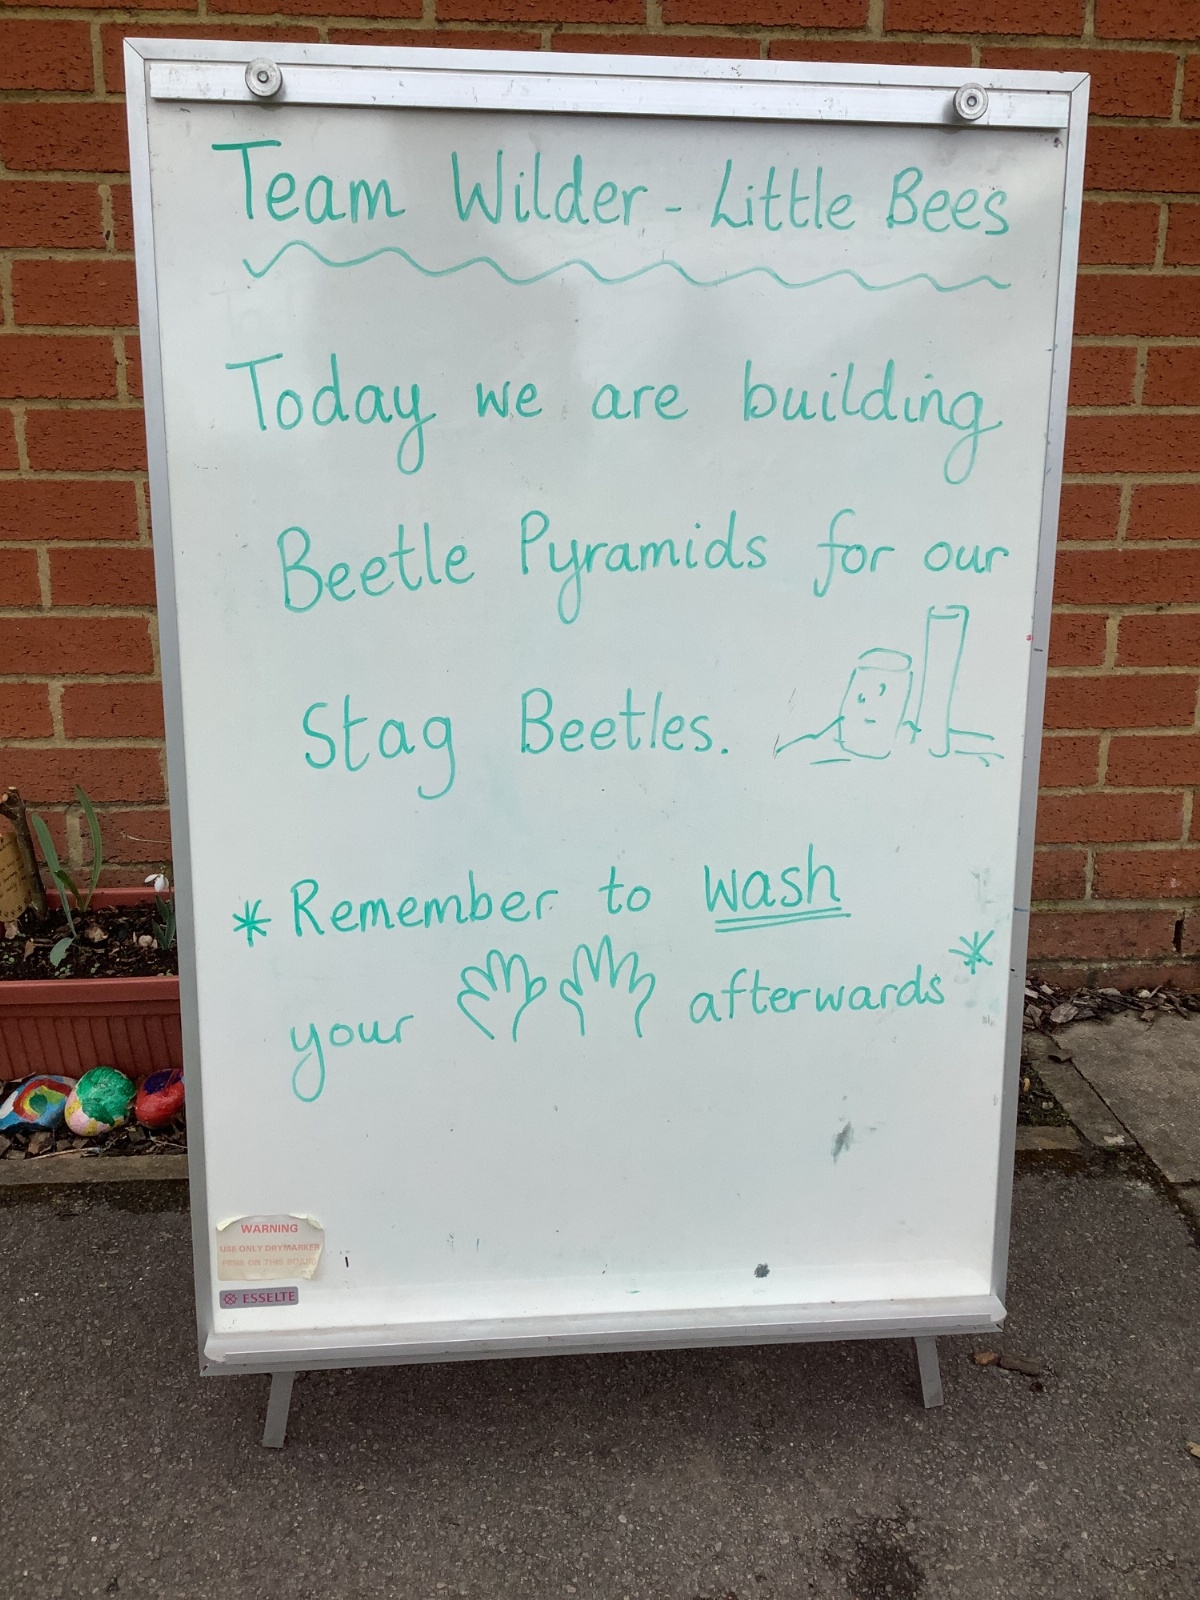 Team Wilder - Little Bees
Today we are building
Beetle Pyramids for our
Stag Beetles.
* Remember to wash
your afterwards *
WARNING
USE ONLY DRYMARKER
PENS ON THIS BOARD
ESSELTE